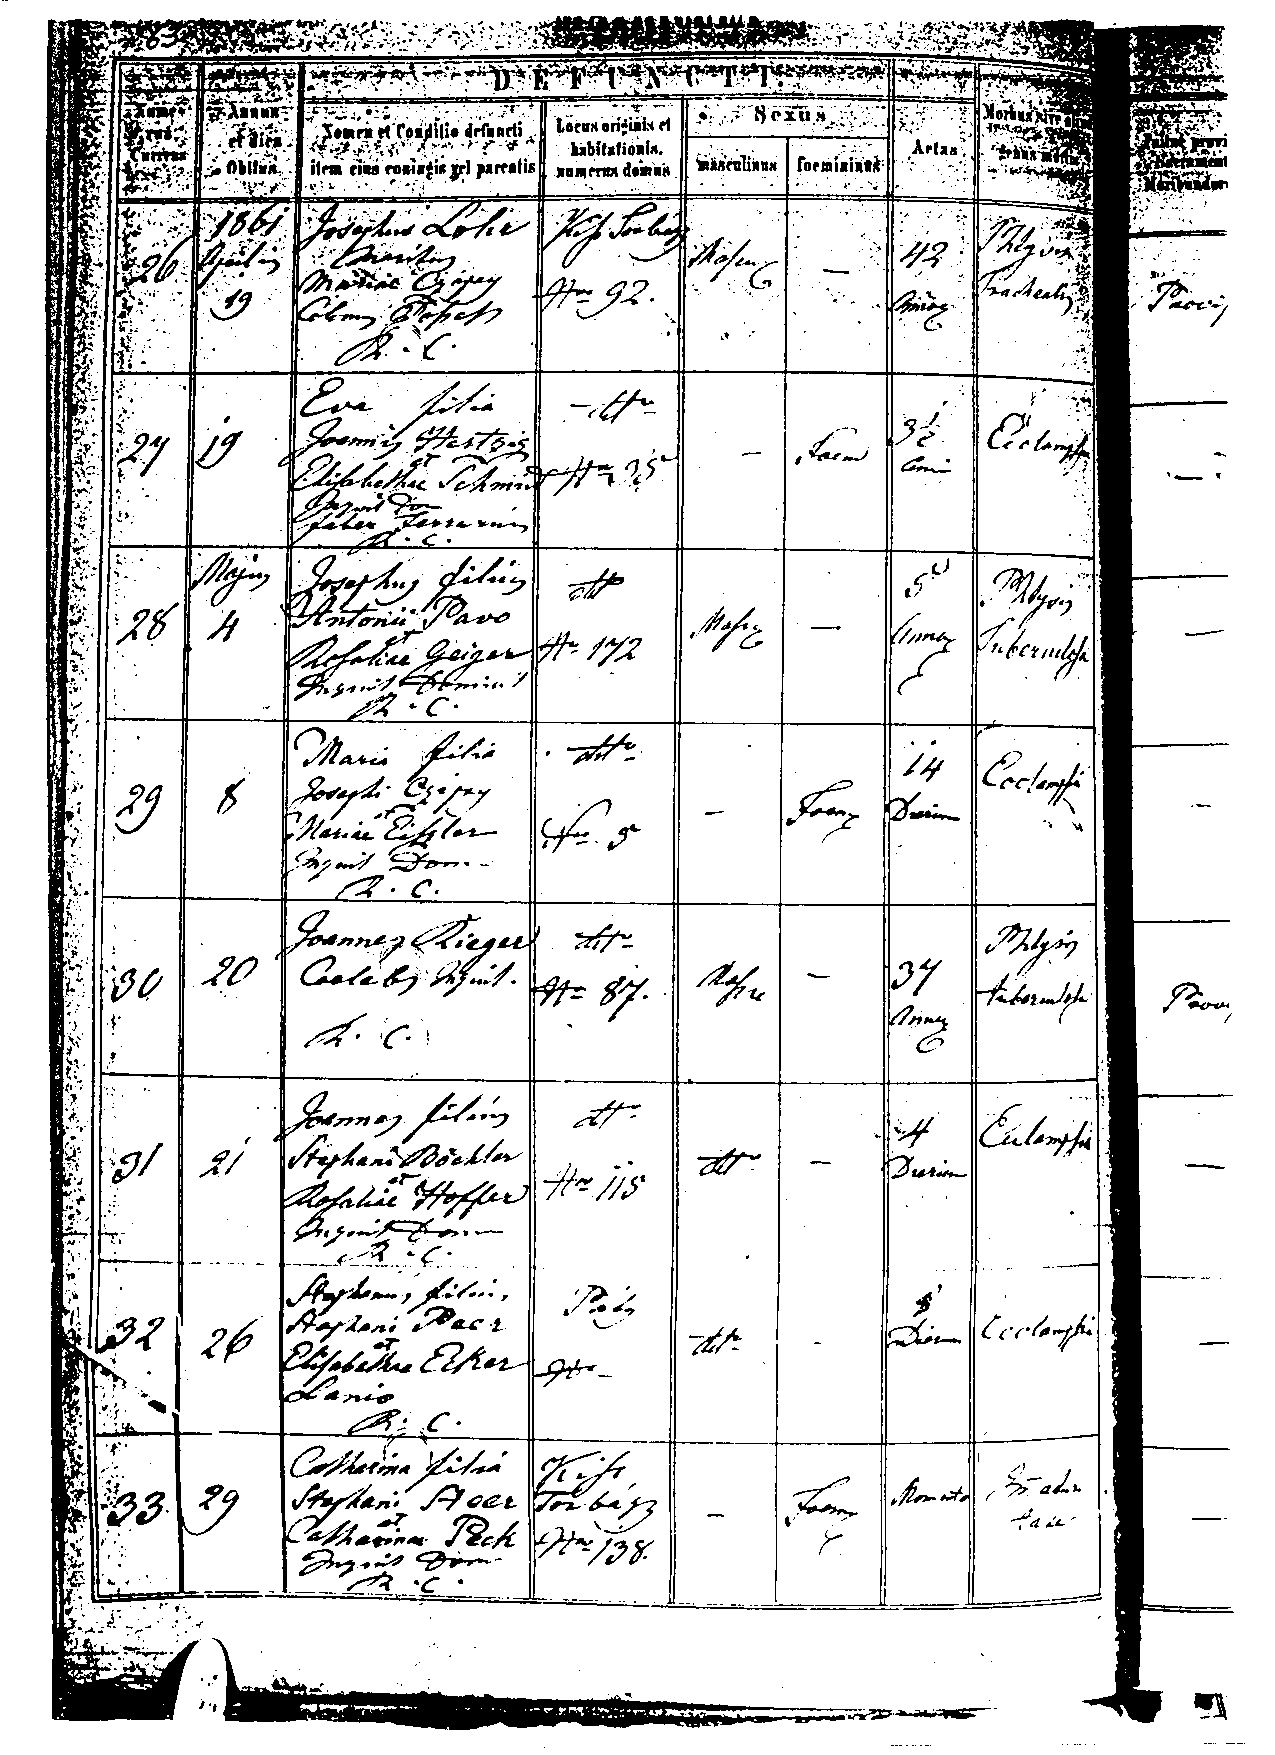 DEFUNCTI.
Numerus Currens
Annus et dies Obitus
Nomen et Conditio defuncti item eius coniugis vel parentis
Locus originis et habitationis, numerus domus
Sexus
masculinus
foemininus
Aetas
26
1861
19
Josephus Lohr
Maritus
Mariae Czipey
R. C.
Nro 92.
Masc
—
42
Annor
Phtysis
Trachealis
27
19
Eva filia
Joannis Hertzig
et
Elisabethae Schmidt
Inquil Dom
faber ferrarius
R. C.
dtto
Nro 35
—
Foem
3½
Anni
Ecclampsia
—
28
Majus
4
Josephus filius
Antonii Pavo
et
Rosaliae Geiger
Inquil Domini
R. C.
dtt
Nro 172
Masc
—
5
Annor
Phtysis
Tuberculosa
—
29
8
Maria filia
Josephi Czipey
et
Mariae Eissler
Inquil Dom
R. C.
dtto
Nro 5
—
Foem
14
Dierum
Ecclampsia
—
30
20
Joannes Rieger
Caelebs Inquil.
R. C.
dtto
Nro 87.
Masc
—
37
Annor
Phtysis
tuberculosa
31
21
Joannes filius
Stephani Böchler
et
Rosaliae Hoffer
Inquil Dom
R. C.
dtto
Nro 115
dtto
—
4
Dierum
Eclampsia
—
32
26
Stephanus filius
Stephani Paer
et
Elisabethae Ecker
Lanio
R. C.
Páty
Nro —
dtto
—
8
Dierum
Ecclampsia
—
33
29
Catharina filia
Stephani Steer
et
Catharinae Peck
Inquil Dom
R. C.
Kiss
Torbágy
Nro 138.
—
Foem
Momento
—